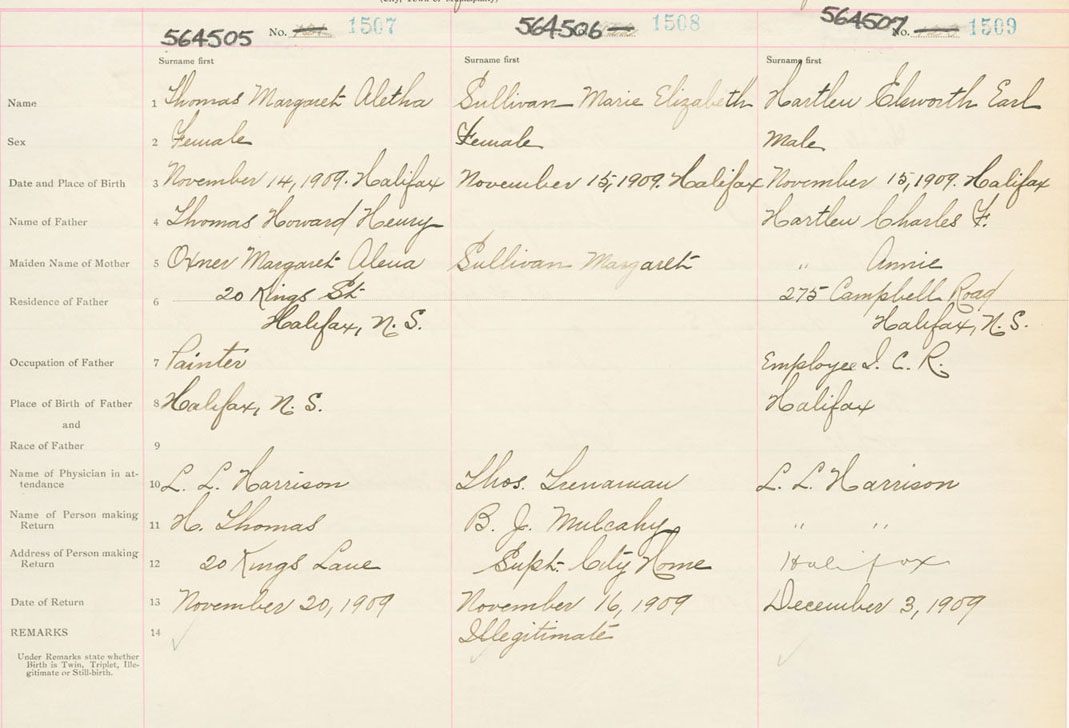 564505 No. 1507 564506 1508 564507 No. 1509
Surname first Surname first Surname first
Name 1 Thomas Margaret Aletha Sullivan Marie Elizabeth Hartlen Elsworth Earl
Sex 2 Female Female Male
Date and Place of Birth 3 November 14, 1909. Halifax November 15, 1909. Halifax November 15, 1909. Halifax
Name of Father 4 Thomas Howard Henry Hartlen Charles F.
Maiden Name of Mother 5 Oxner Margaret Alena Sullivan Margaret " Annie
Residence of Father 6 20 Kings St 275 Campbell Road
Halifax, N. S. Halifax, N. S.
Occupation of Father 7 Painter Employee I. C. R.
Place of Birth of Father 8 Halifax, N. S. Halifax
and
Race of Father 9
Name of Physician in at-
tendance 10 L. L. Harrison Thos. Trenaman L. L. Harrison
Name of Person making
Return 11 H. Thomas B. J. Mulcahy " "
Address of Person making
Return 12 20 Kings Lane Supt. City Home Halifax
Date of Return 13 November 20, 1909 November 16, 1909 December 3, 1909
REMARKS 14 Illegitimate
Under Remarks state whether
Birth is Twin, Triplet, Ille-
gitimate or Still-birth.